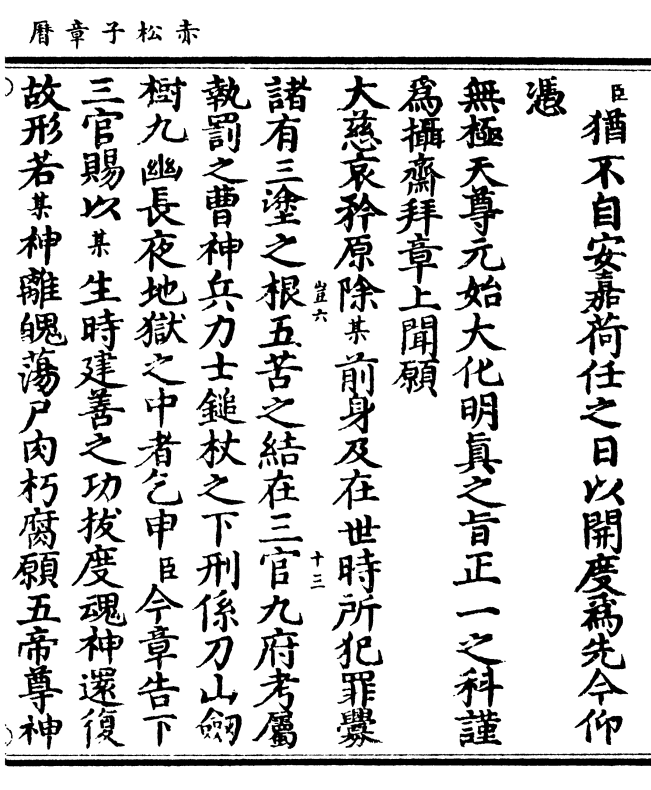 赤松子章曆
臣猶不自安嘉荷任之日以開度爲先今仰
憑
無極天尊元始大化明眞之旨正一之科謹
爲攝齋拜章上聞願
大慈哀矜原除某前身及在世時所犯罪釁
豈六
十三
諸有三塗之根五苦之結在三官九府考屬
執罰之曹神兵力士鎚杖之下刑係刀山劒
樹九幽長夜地獄之中者乞申臣今章告下
三官賜以某生時建善之功拔度魂神還復
故形若某神離魄蕩尸肉朽腐願五帝尊神